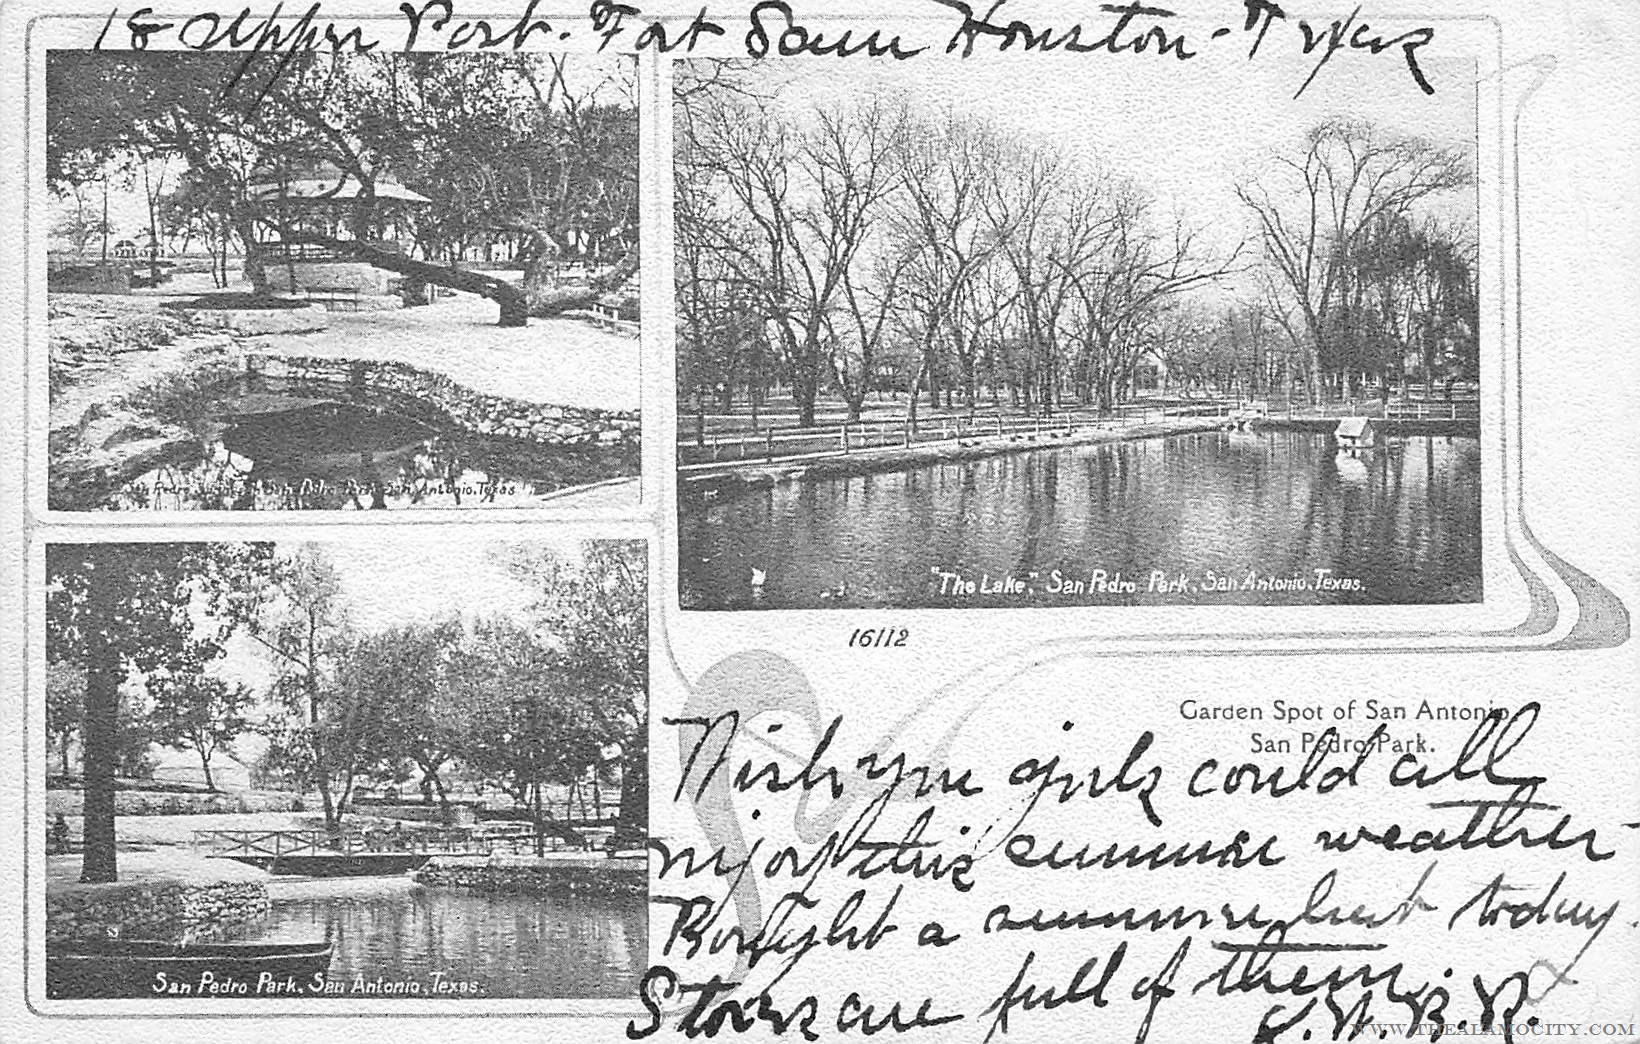 18 Upper Post - Fort Sam Houston - Texas
San Pedro Park, San Antonio, Texas
"The Lake," San Pedro Park, San Antonio, Texas.
16112
Garden Spot of San Antonio,
San Pedro Park.
San Pedro Park, San Antonio, Texas.
Wish you girls could all
enjoy this summer weather
Bought a summer hat today.
Stores are full of them.
WWW.THEALAMOCITY.COM